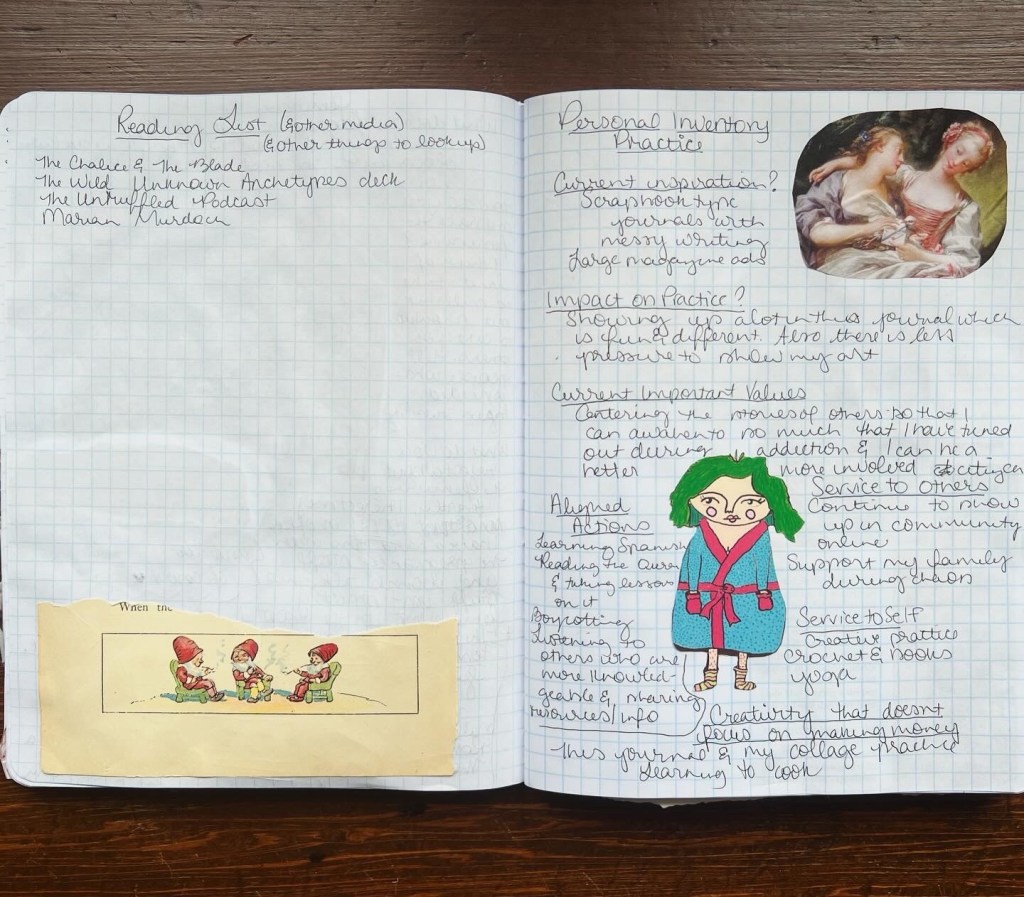 Reading List (& other media)
(& other things to look up)
The Chalice & The Blade
The Wild Unknown Archetypes deck
The Unruffled Podcast
Marian Murdoch
When the
Personal Inventory
Practice
Current inspiration?
Scrapbook type
journals with
messy writing
Large magazine ads
Impact on Practice?
Showing up a lot in this journal which
is fun & different. Also there is less
pressure to show my art
Current Important Values
Centering the stories of others so that I
can awaken to so much that I have tuned
out during addiction & I can be a
better more involved citizen
Aligned
Actions
Learning Spanish
Reading the Quran
& taking lessons
on it
Boycotting
Listening to
others who are
more knowled-
geable & sharing
resources/info
Service to Others
Continue to show
up in community
online
Support my family
during chaos
Service to Self
Creative practice
Crochet & books
yoga
Creativity that doesnt
focus on making money
This journal & my collage practice
Learning to cook